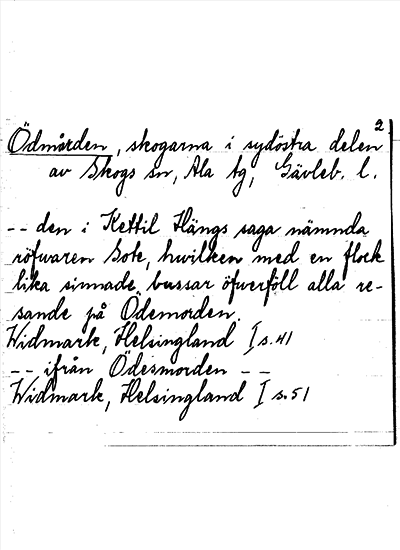 2
Ödmården, skogarna i sydöstra delen
av Skogs sn, Ala tg, Gävleb. l.
-- den i Kettil Hängs saga nämnda
röfwaren Sote, hwilken med en flock
lika sinnade bussar öfverföll alla re-
sande på Ödemorden.
Widmark, Helsingland I s. 41
-- ifrån Ödesmorden --
Widmark, Helsingland I s. 51